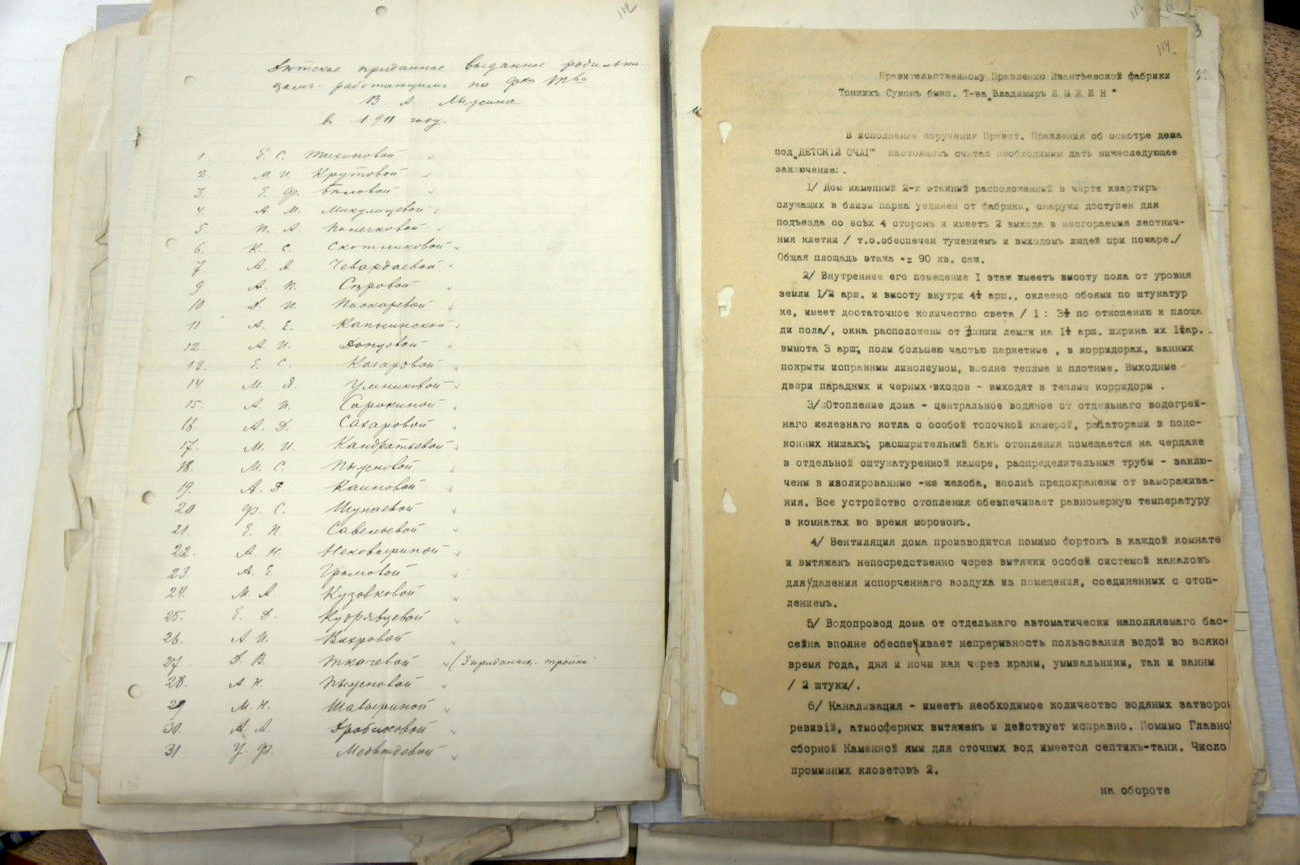 112
Дѣтское приданное выданное родильни-
цамъ работающимъ на фкѣ Тва
В. А. Лыжина
в 1911 году.
1. Е. С. Тихоновой "
2. М. И. Крутовой "
3. Е. Ф. Бѣловой "
4. А. М. Микулицевой "
5 П. А Полежковой "
6. К. С. Скотниковой "
7 А. А Чевардаевой "
9 А. П. Сѣровой "
10 Д. И. Пискаревой "
11 А. Е. "
12. А. И. Донцовой "
13. Е. С. "
14 М. Умниковой "
15. А. И. Сорокиной "
16. А. Д. Сахаровой "
17. М. И. Кандратьевой "
18. М. С. "
19. А. Д. "
20 Ф. С. "
21. Е. П. Савельевой "
22. А. Н. "
23. А. Е Громовой "
24. М. А Кузовковой "
25. Е. Д. Кудрявцевой "
26. А. И. "
27. Д. В. Ткачевой " (3 приданных - тройни
28. А. Н. "
29 М. Н. Шавыриной "
30. А. А. "
31 У. Ф. Медвѣдевой "
113
114
Правительственному Правлению Ивантѣевской фабрики
Тонкихъ Суконъ бывш. Т-ва "Владимиръ Л Ы Ж И Н"
В исполнение поручения Правит. Правления об осмотре дома
под "ДЕТСКIЙ ОЧАГ" настоящимъ считаю необходимым дать нижеследующее
заключение:.
1/ Дом каменный 2-х этажный расположенный в черте квартиръ
служащих в близи парка уединен от фабрики, снаружи доступен для
подъезда со всѣх 4 сторонъ и имеетъ 2 выхода в несгораемыя лестнич-
ныя клетки / т.о.обеспечен тушением и выходом людей при пожаре./
Общая площадь этажа = 90 кв. саж.
2/ Внутреннее его помещение I этаж имеетъ высоту пола от уровня
земли I/2 арш. и высоту внутри 4½ арш., оклеено обоями по штукатур
ке, имеет достаточное количество света / I : 3½ по отношению к площа
ди пола/, окна расположены от линии земли на 1½ арш. ширина их 1½ар.
высота 3 арш, полы большею частью паркетные , в корридорах, ванных
покрыты исправным линолеумом, вполне теплые и плотные. Выходные
двери парадных и черных входов - выходят в теплые корридоры .
3/ Отопление дома - центральное водяное от отдельнаго водогрей-
наго железнаго котла с особой топочной камерой, радiаторами в подо-
конных нишахъ, расширительный бакъ отопления помещается на чердаке
в отдельной оштукатуренной камере, распределительныя трубы - заклю-
чены в изолированные -же желоба, вполнѣ предохранены от заморажива-
ния. Все устройство отопления обезпечивает равномерную температуру
в комнатах во время морозовъ.
4/ Вентиляция дома производится помимо форток в каждой комнате
и вытяжек непосредственно через вытяжки особой системой каналовъ
для удаления испорченнаго воздуха из помещения, соединенных с отоп-
лением.
5/ Водопровод дома от отдельнаго автоматически наполняемаго бас-
сейна вполне обеспечивает непрерывность пользования водой во всякое
время года, дня и ночи как через краны, умывальники, так и ванны
/ 2 штуки/.
6/ Канализация - имеетъ необходимое количество водяных затворов
ревизiй, атмосферных вытяжек и действует исправно. Помимо Главной
сборной Каменной ямы для сточных вод имеется септикъ-танк. Число
промывных клозетовъ 2.
на обороте